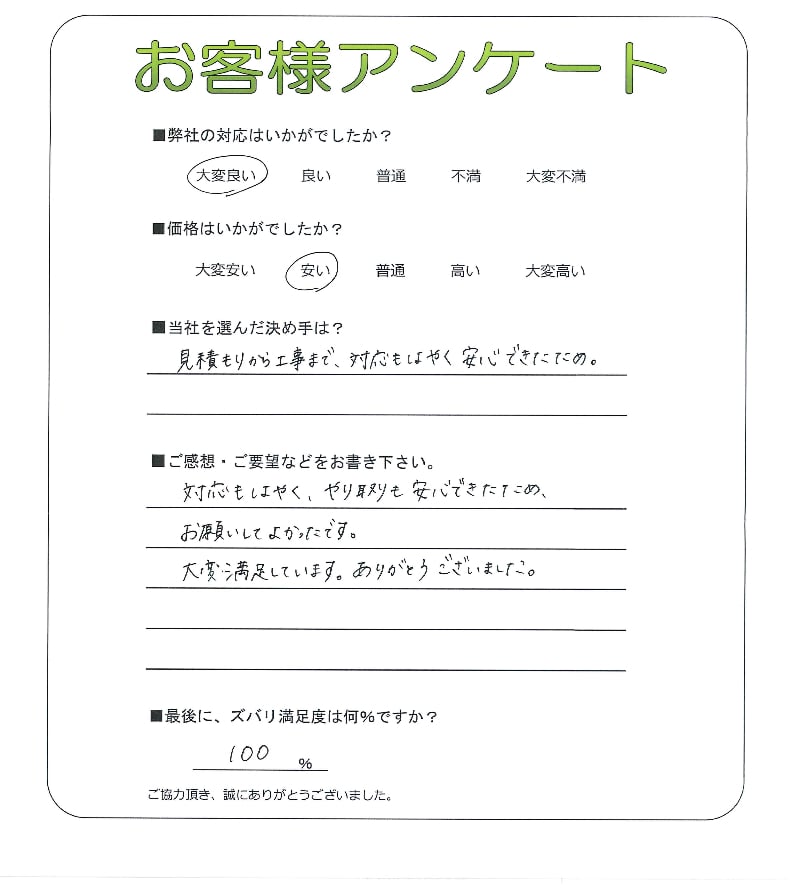 お客様アンケート
■弊社の対応はいかがでしたか？
大変良い 良い 普通 不満 大変不満
■価格はいかがでしたか？
大変安い 安い 普通 高い 大変高い
■当社を選んだ決め手は？
見積もりから工事まで、対応もはやく安心できたため。
■ご感想・ご要望などをお書き下さい。
対応もはやく、やり取りも安心できたため、
お願いしてよかったです。
大変満足しています。ありがとうございました。
■最後に、ズバリ満足度は何％ですか？
100 ％
ご協力頂き、誠にありがとうございました。